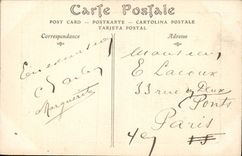 Carte Postale
POST CARD - POSTKARTE - CARTOLINA POSTALE
TARJETA POSTAL
Correspondance
Adresse
Charles
Marguerite
Monsieur
E Lacoux
33 rue Deux
Ponts
Paris